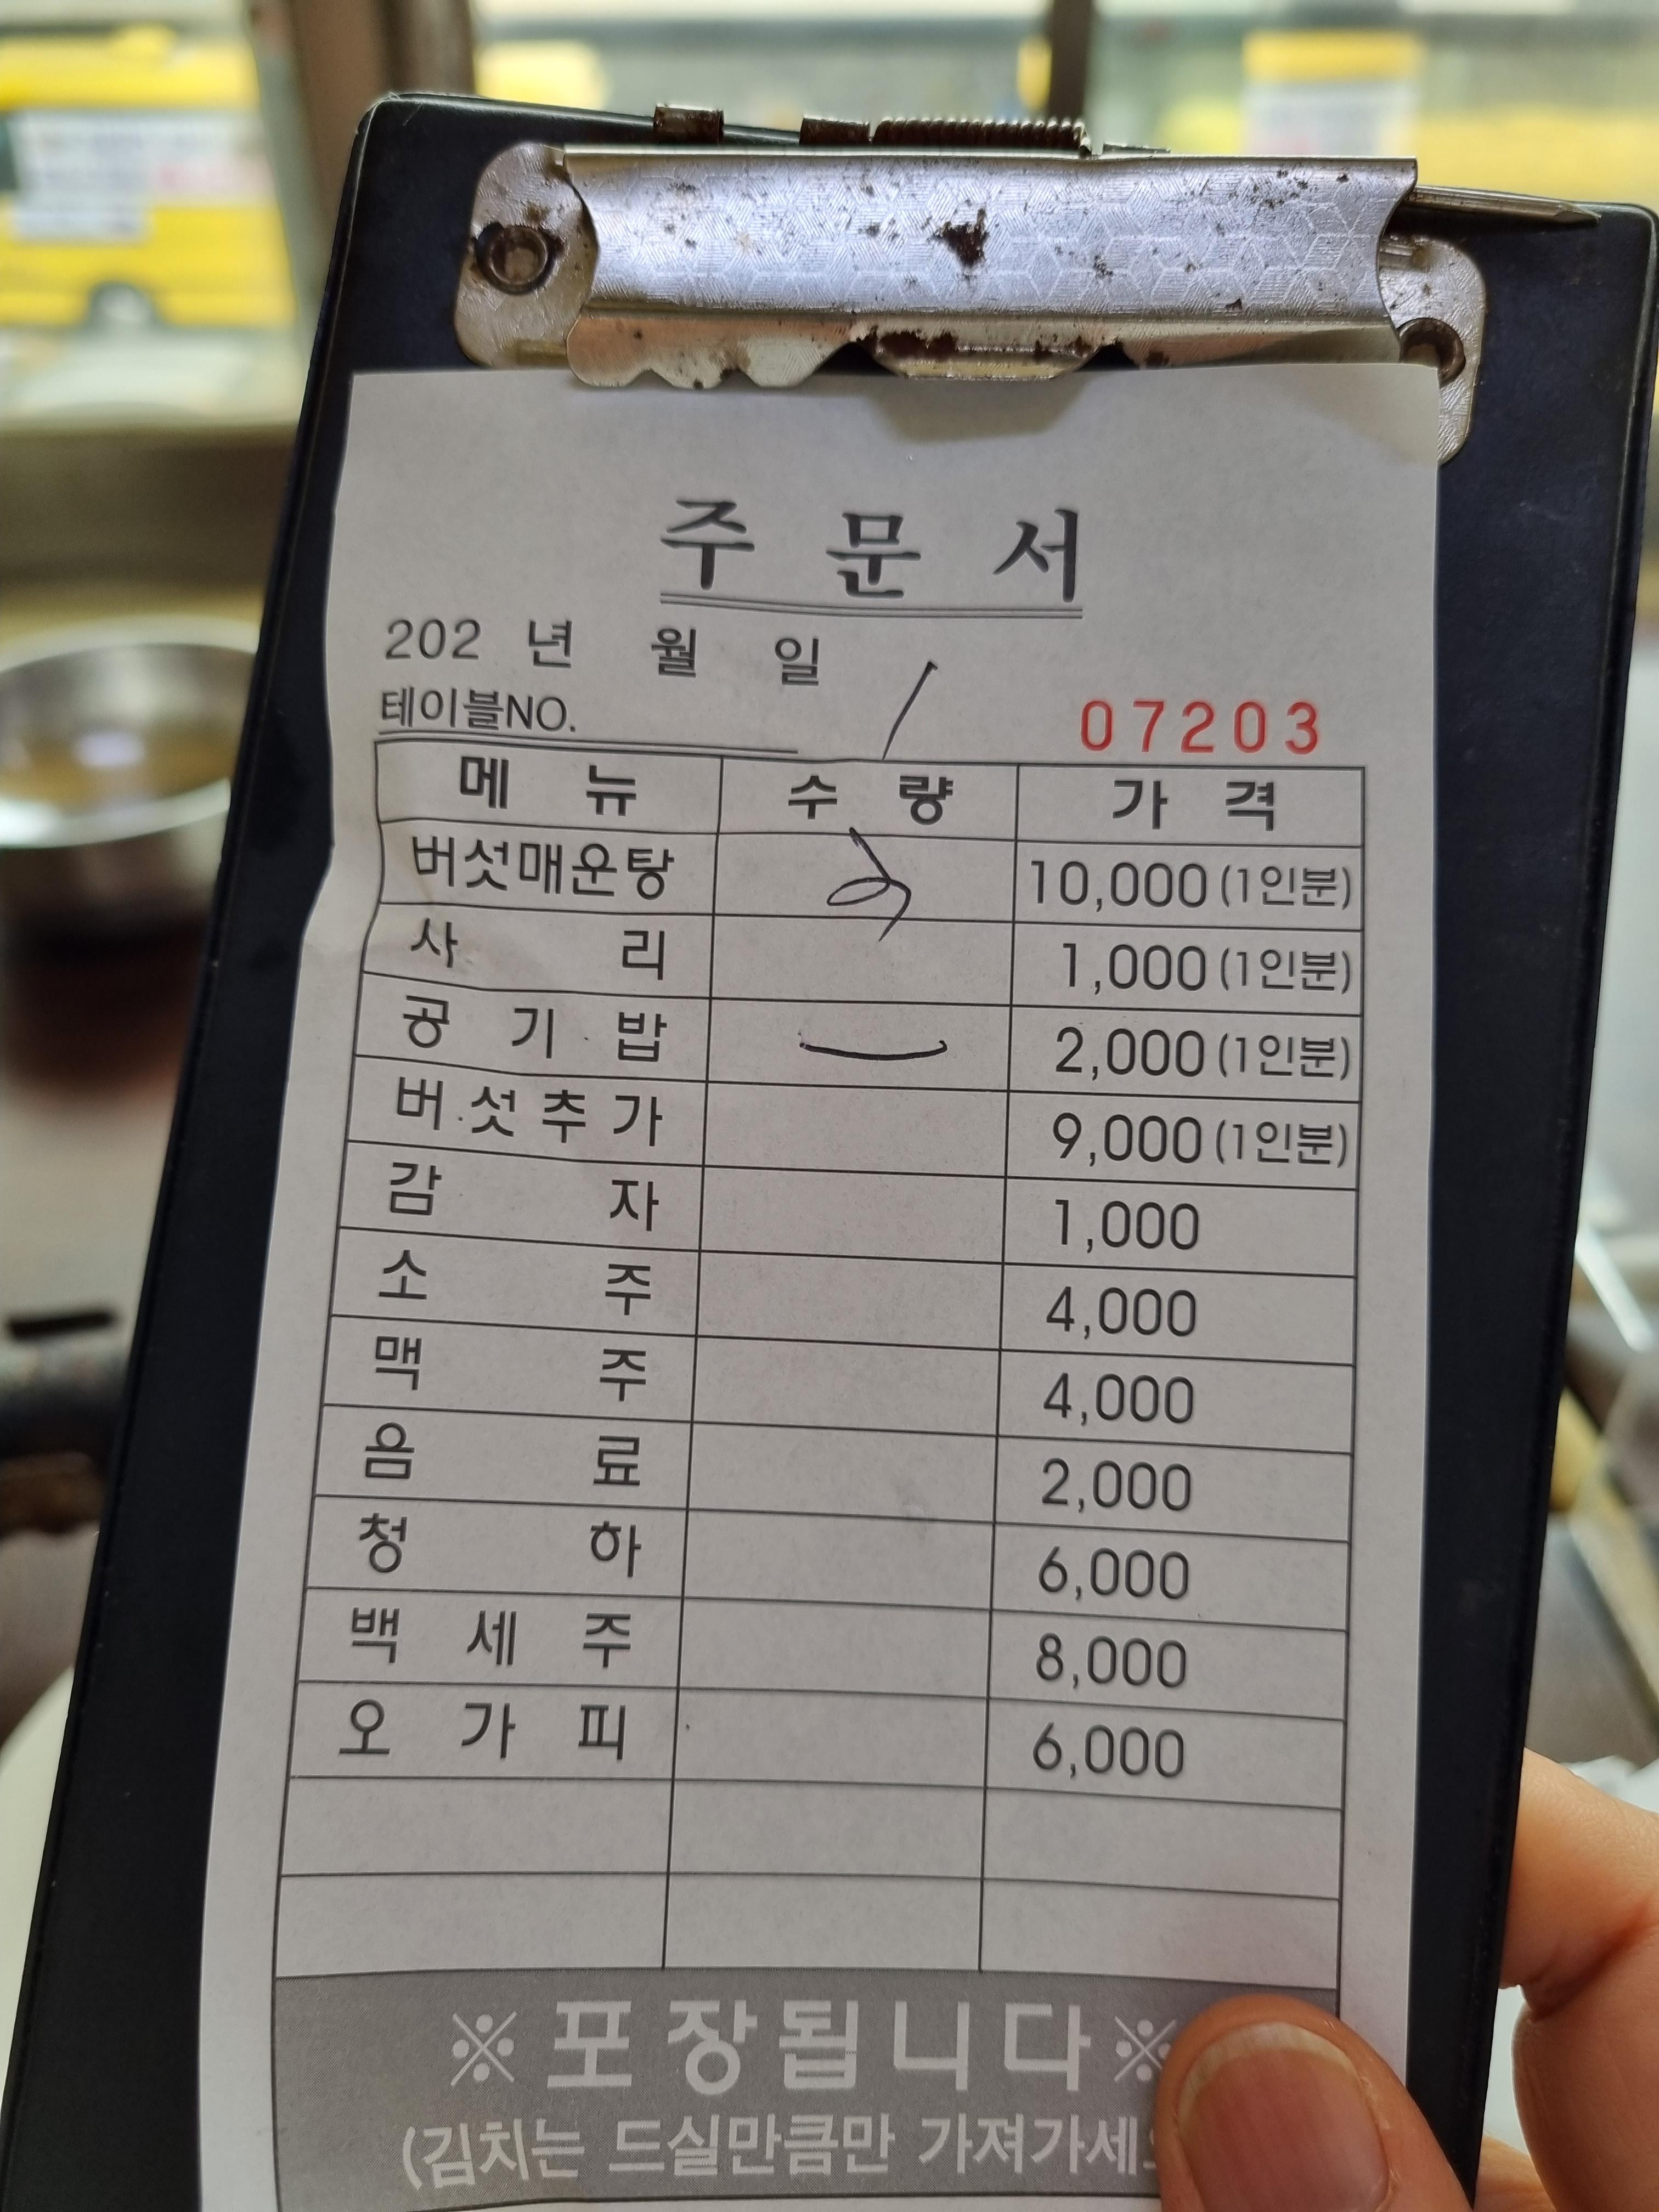 주문서
202 년 월 일
테이블NO. 07203
메뉴 수량 가격
버섯매운탕 2 10,000(1인분)
사리 1,000(1인분)
공기밥 2,000(1인분)
버섯추가 9,000(1인분)
감자 1,000
소주 4,000
맥주 4,000
음료 2,000
청하 6,000
백세주 8,000
오가피 6,000
※포장됩니다※
(김치는 드실만큼만 가져가세